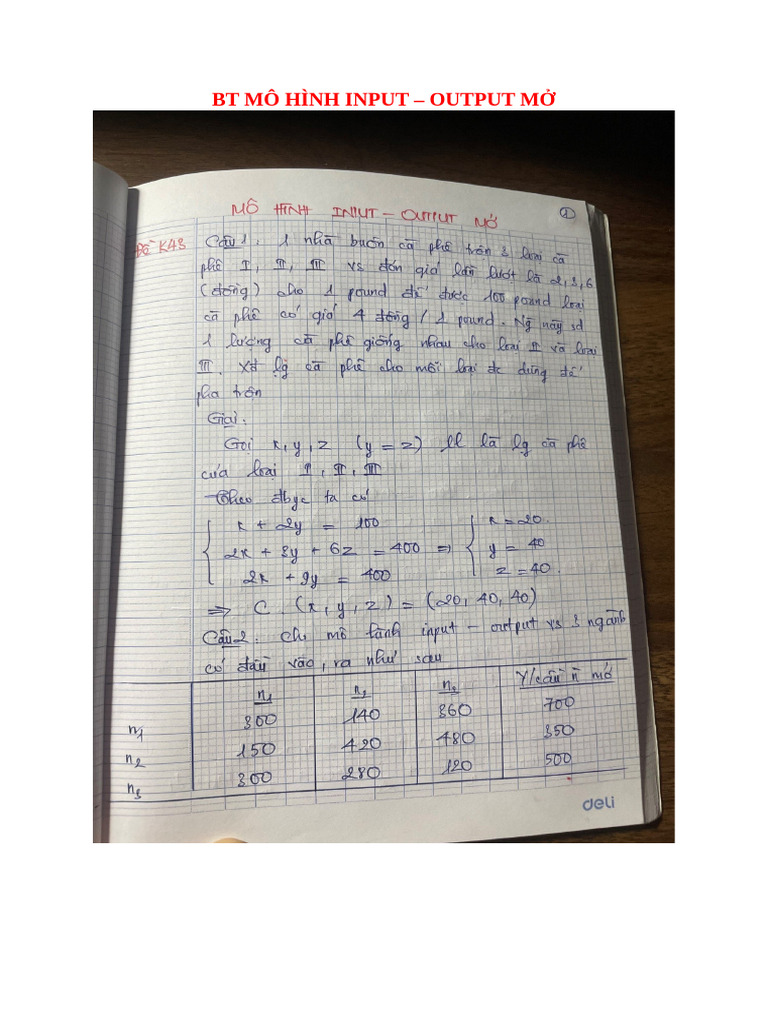 BT MÔ HÌNH INPUT – OUTPUT MỞ
MÔ HÌNH INPUT – OUTPUT MỞ
1
Đề K48 Câu 1: 1 nhà buôn cà phê trộn 3 loại cà
phê I, II, III vs đơn giá lần lượt là 2,3,6
(đồng) cho 1 pound để được 100 pound loại
cà phê có giá 4 đồng / 1 pound. Ng này sd
1 lượng cà phê giống nhau cho loại II và loại
III. Xđ lg cà phê cho mỗi loại đc dùng để
pha trộn
Giải.
Gọi x, y, z (y = z) ll là lg cà phê
của loại I, II, III
Theo đbyc ta có
x + 2y = 100
2x + 3y + 6z = 400 => x = 20.
2x + 9y = 400 y = 40
z = 40.
=> C. (x, y, z) = (20, 40, 40)
Câu 2: Cho mô hình input – output vs 3 ngành
có đầu vào, ra như sau
n1 n2 n3 Y/cầu n mở
n1 300 140 360 700
n2 150 420 480 350
n3 300 280 120 500
deli